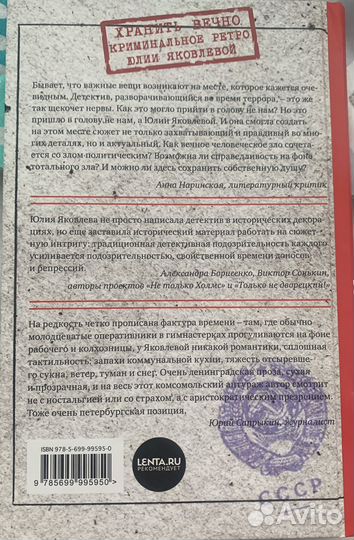 ХРАНИТЬ ВЕЧНО.
КРИМИНАЛЬНОЕ РЕТРО
ЮЛИИ ЯКОВЛЕВОЙ
Бывает, что важные вещи возникают на месте, которое кажется оче-
видным. Детектив, разворачивающийся во время террора, – это же
так щекочет нервы. Как это могло прийти в голову не нам? Но это
пришло в голову не нам, а Юлии Яковлевой. И она смогла создать
на этом месте сюжет не только захватывающий и правдивый во мно-
гих деталях, но и актуальный. Как вечное человеческое зло сочета-
ется со злом политическим? Возможна ли справедливость на фоне
тотального зла? И можно ли здесь сохранить собственную душу?
Анна Наринская, литературный критик
Юлия Яковлева не просто написала детектив в исторических декора-
циях, но еще заставила исторический материал работать на сюжет-
ную интригу: традиционная детективная подозрительность каждого
усиливается подозрительностью, свойственной времени доносов
и репрессий.
Александра Борисенко, Виктор Сонькин,
авторы проектов «Не только Холмс» и «Только не дворецкий!»
На редкость четко прописана фактура времени – там, где обычно
молодцеватые оперативники в гимнастерках прогуливаются на фоне
рабочего и колхозницы, у Яковлевой никакой романтики, сплошная
тактильность: запахи коммунальной кухни, тяжесть отсыревше-
го сукна, ветер, туман и снег. Очень ленинградская проза, сухая
и прозрачная, и на весь этот комсомольский антураж автор смотрит
не с ностальгией или со страхом, а с аристократическим презрением.
Тоже очень петербургская позиция.
Юрий Сапрыкин, журналист
ISBN 978-5-699-99595-0
9 785699 995950 >
LENTA.RU
РЕКОМЕНДУЕТ
СССР
Avito